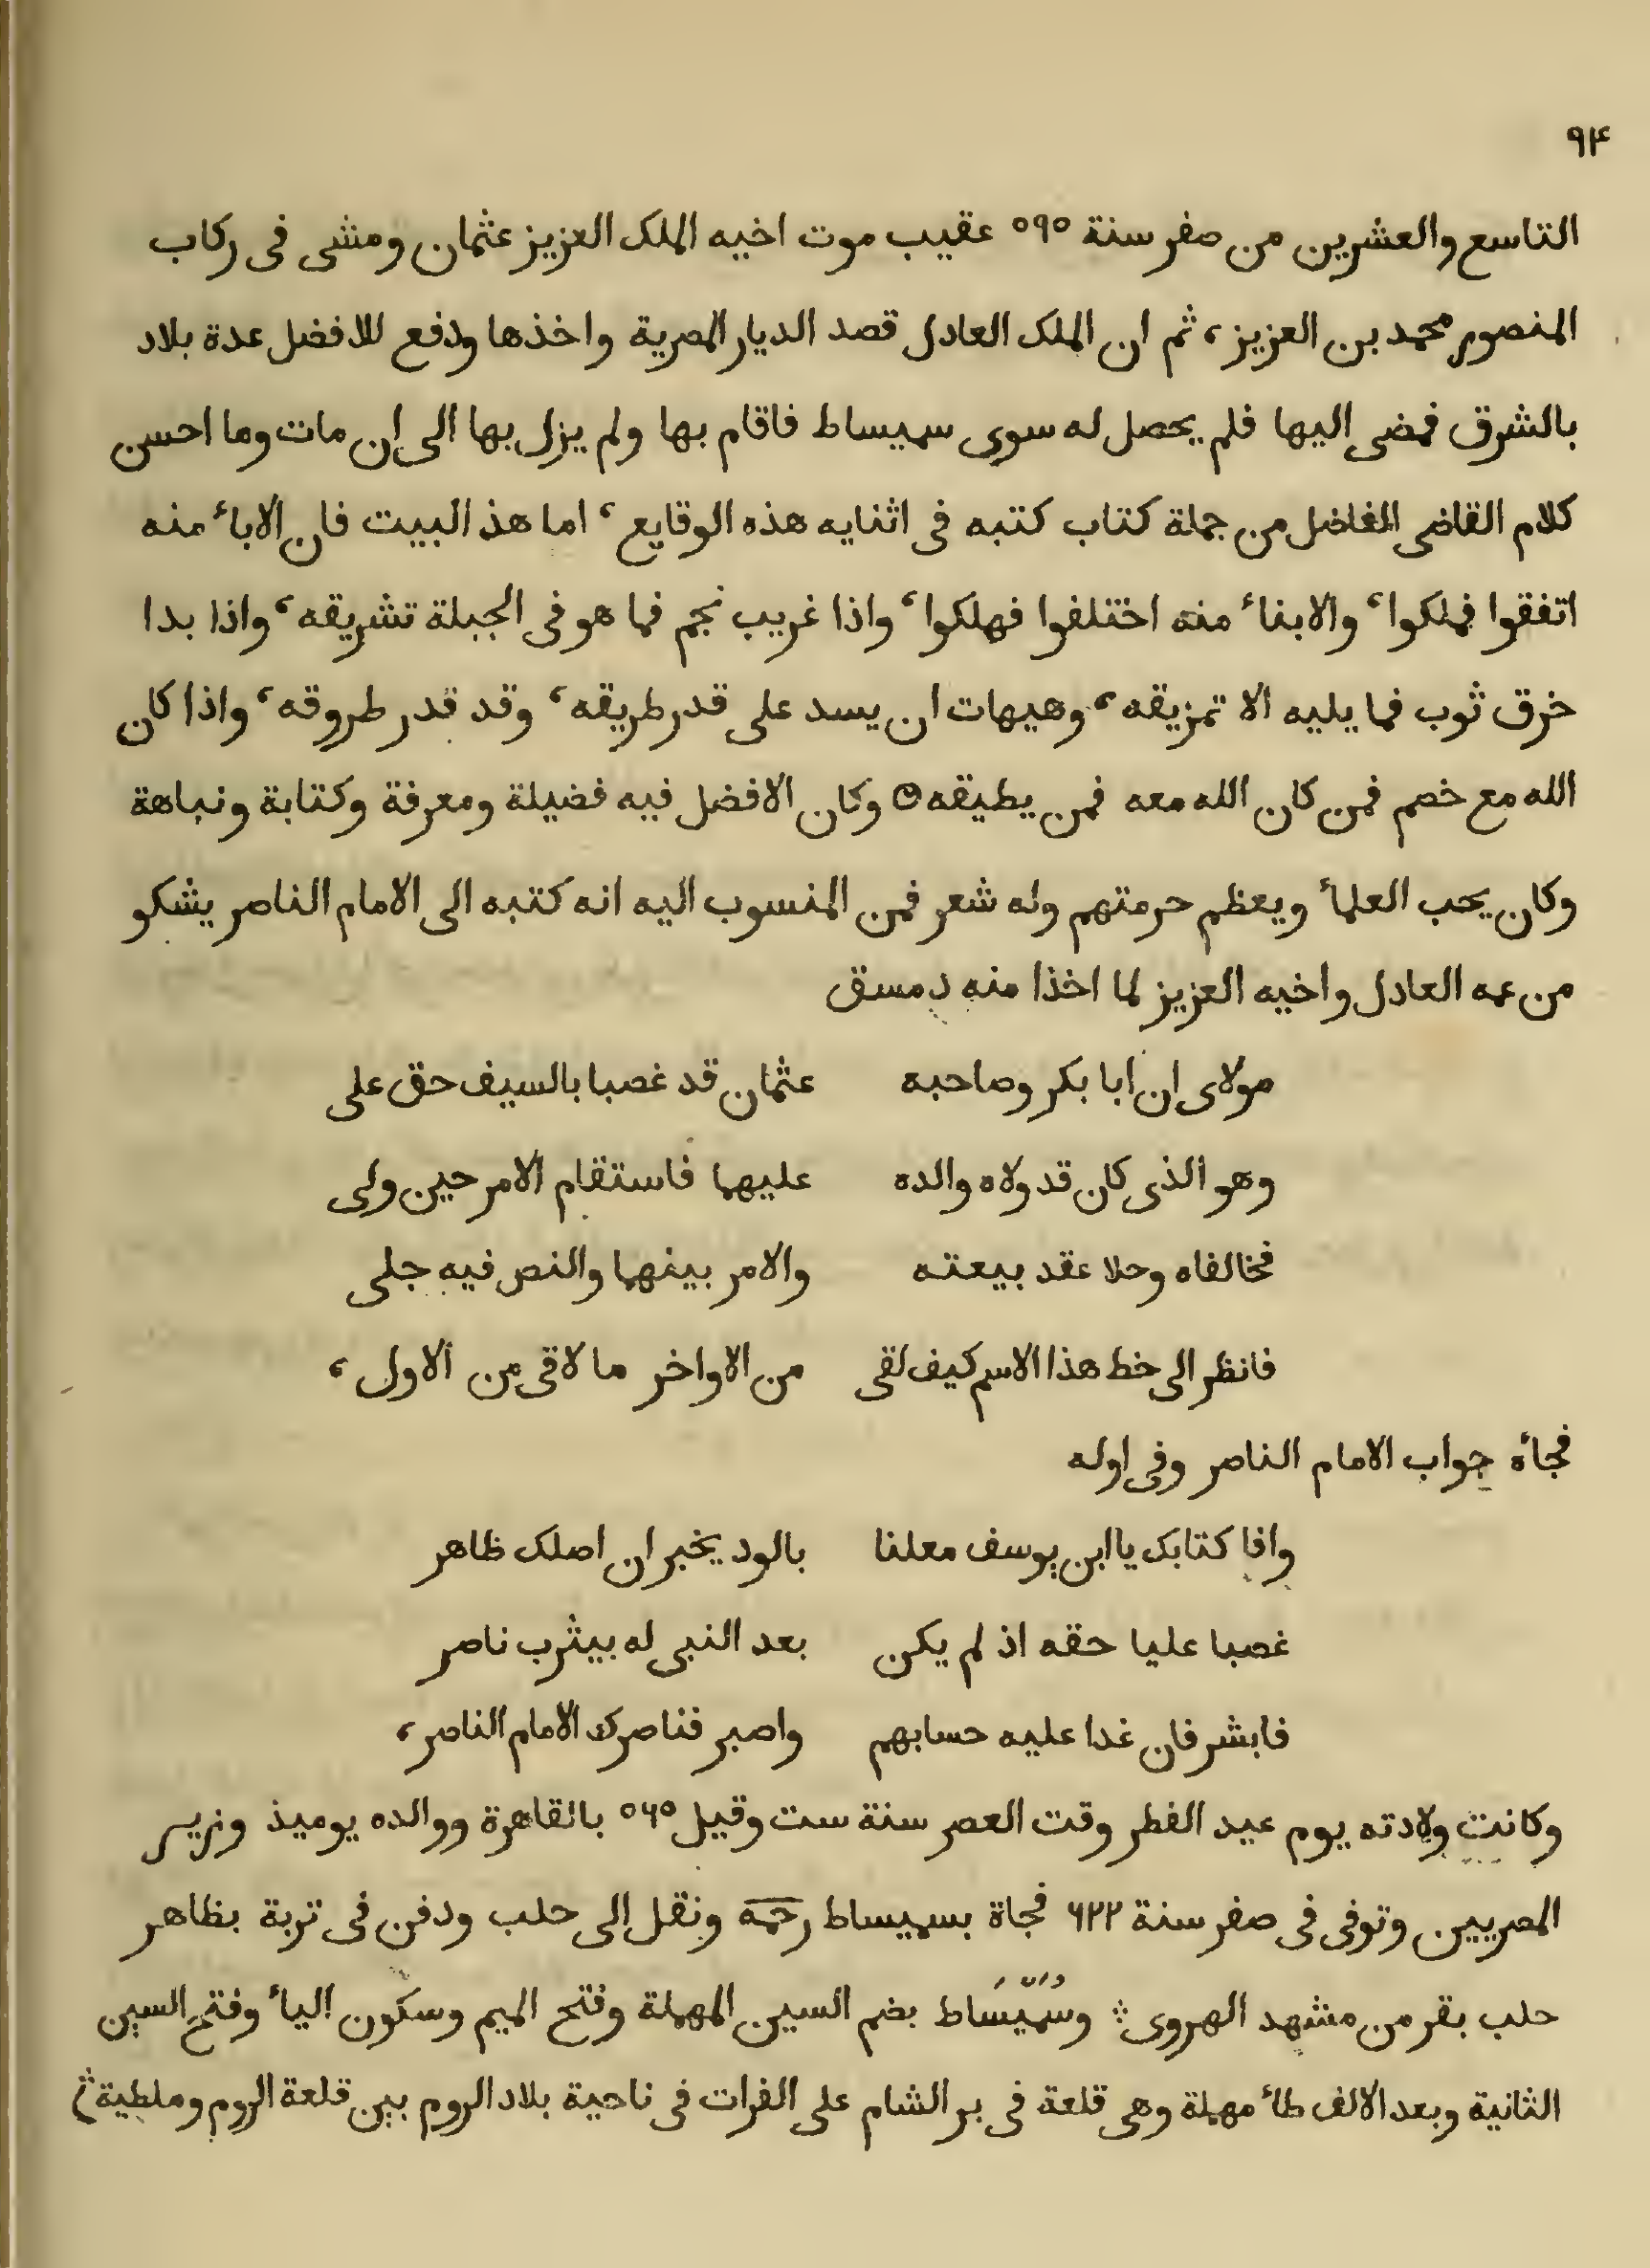 ٩٤
التاسع والعشرين من صفر سنة ٥٩٥ عقيب موت اخيه الملك العزيز عثمان ومشى فى ركاب
المنصور محمد بن العزيز، ثم ان الملك العادل قصد الديار المصرية واخذها ودفع للافضل عدة بلاد
بالشرق فمضى اليها فلم يحصل له سوى سميساط فاقام بها ولم يزل بها الى ان مات وما احسن
كلام القاضى الفاضل من جملة كتاب كتبه فى اثنايه هذه الوقايع، اما هذ البيت فان الاباء منه
اتفقوا فملكوا، والابناء منه اختلفوا فهلكوا، واذا غريب نجم فما هو فى الجبلة تشريقه، واذا بدا
خرق ثوب فما يليه الا تمزيقه، وهيهات ان يسد على قدر طريقه، وقد قدر طروقه، واذا كان
الله مع خصم فمن كان الله معه فمن يطيقه وكان الافضل فيه فضيلة ومعرفة وكتابة ونباهة
وكان يحب العلماء ويعظم حرمتهم وله شعر فمن المنسوب اليه انه كتبه الى الامام الناصر يشكو
من عمه العادل واخيه العزيز لما اخذا منه دمسق
مولاى ان ابا بكر وصاحبه عثمان قد غصبا بالسيف حق على
وهو الذى كان قد ولاه والده عليهما فاستقام الامر حين ولى
فخالفاه وحلا عقد بيعته والامر بينهما والنص فيه جلى
فانظر الى خط هذا الاسم كيف لقى من الاواخر ما لاقى من الاول،
فجاءه جواب الامام الناصر وفى اوله
وافا كتابك يا ابن يوسف معلنا بالود يخبر ان اصلك ظاهر
غصبا عليا حقه اذ لم يكن بعد النبى له بيثرب ناصر
فابشر فان غدا عليه حسابهم واصبر فناصرك الامام الناصر،
وكانت ولادته يوم عيد الفطر وقت العصر سنة ست وقيل ٥٦٥ بالقاهرة ووالده يوميذ وزير
المصريين وتوفى فى صفر سنة ٦٢٢ فجاة بسميساط رحمه ونقل الى حلب ودفن فى تربة بظاهر
حلب بقر من مشهد الهروى ∴ وسُمَيْسَاط بضم السين المهملة وفتح الميم وسكون الياء وفتح السين
الثانية وبعد الالف طاء مهملة وهى قلعة فى بر الشام على الفرات فى ناحية بلاد الروم بين قلعة الروم وملطية